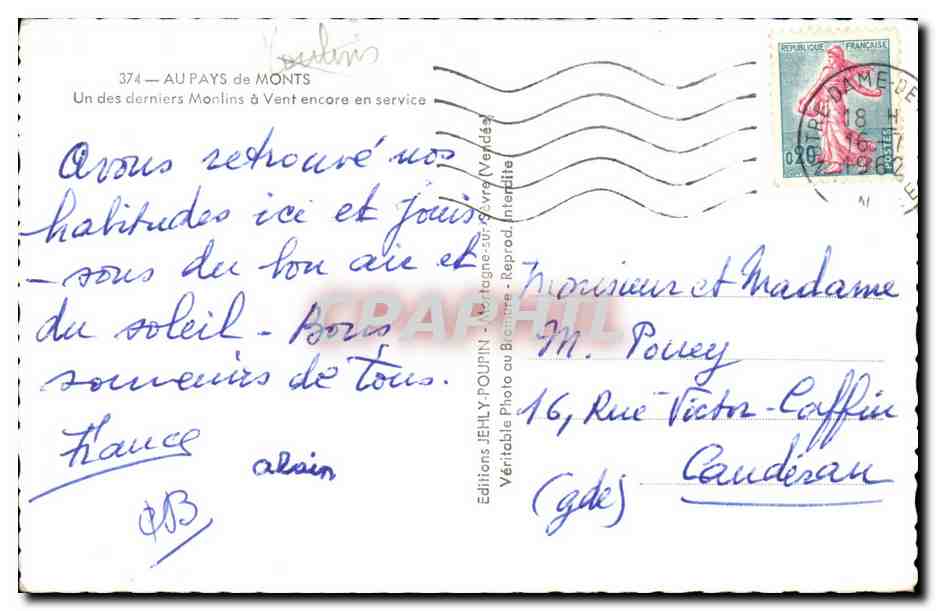 Moulins
374 — AU PAYS de MONTS
Un des derniers Monlins à Vent encore en service
Avons retrouvé nos
habitudes ici et jouis
-sons du bon air et
du soleil - Bons
souvenirs de tous.
France
alain
Editions JEHLY-POUPIN - Mortagne-sur-Sèvre (Vendée)
Véritable Photo au Bromure - Reprod. interdite
REPUBLIQUE FRANÇAISE
0,20
POSTES
TRE-DAME-DE
18 H
16-7
1962
CPAPHIL
Monsieur et Madame
M. Pouey
16, Rue Victor-Caffin
Caudéran
(gde)